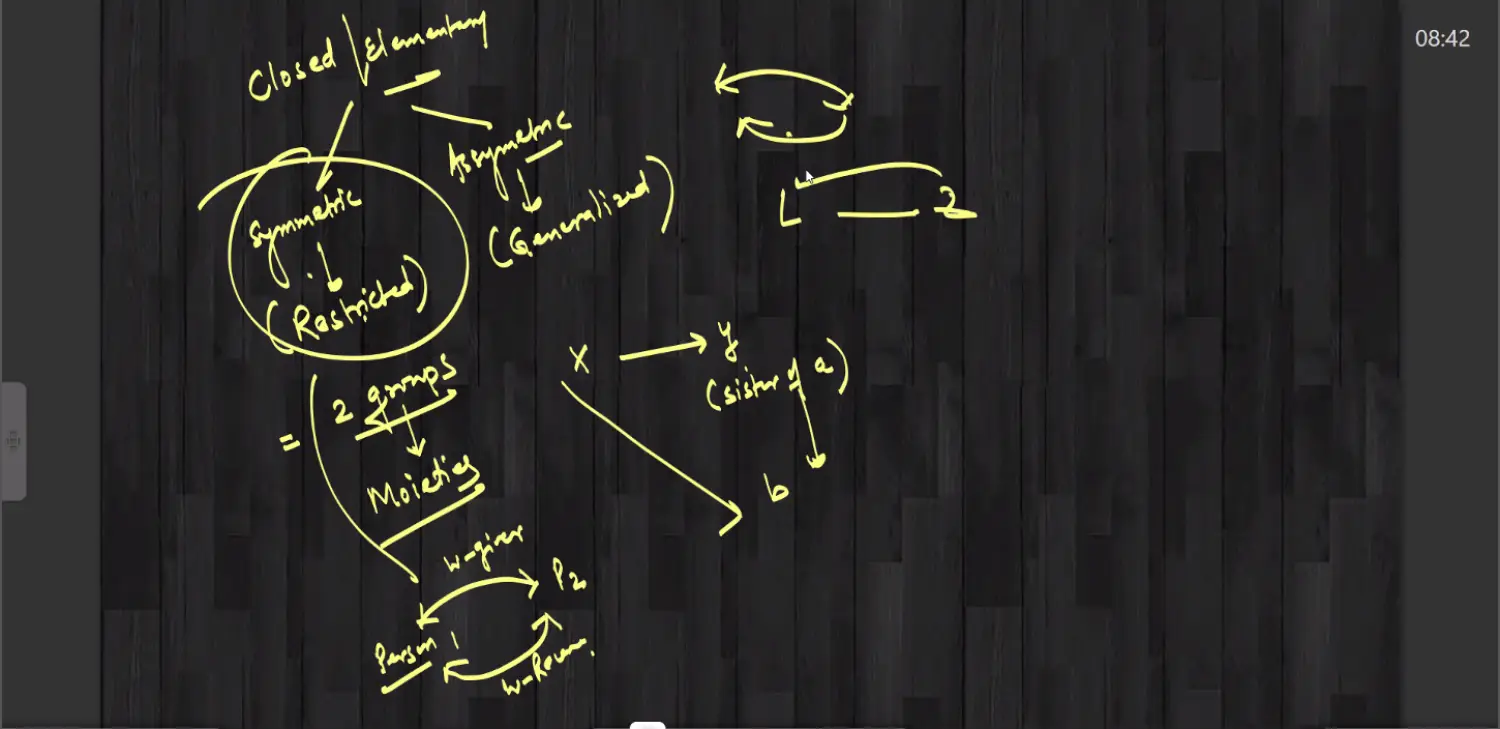 08:42
Closed / Elementary
Assymetric
(Generalized)
Symmetric
(Restricted)
1 2
X → y
(sister of a)
b
= 2 groups
Moieties
w-giver
P2
Person 1